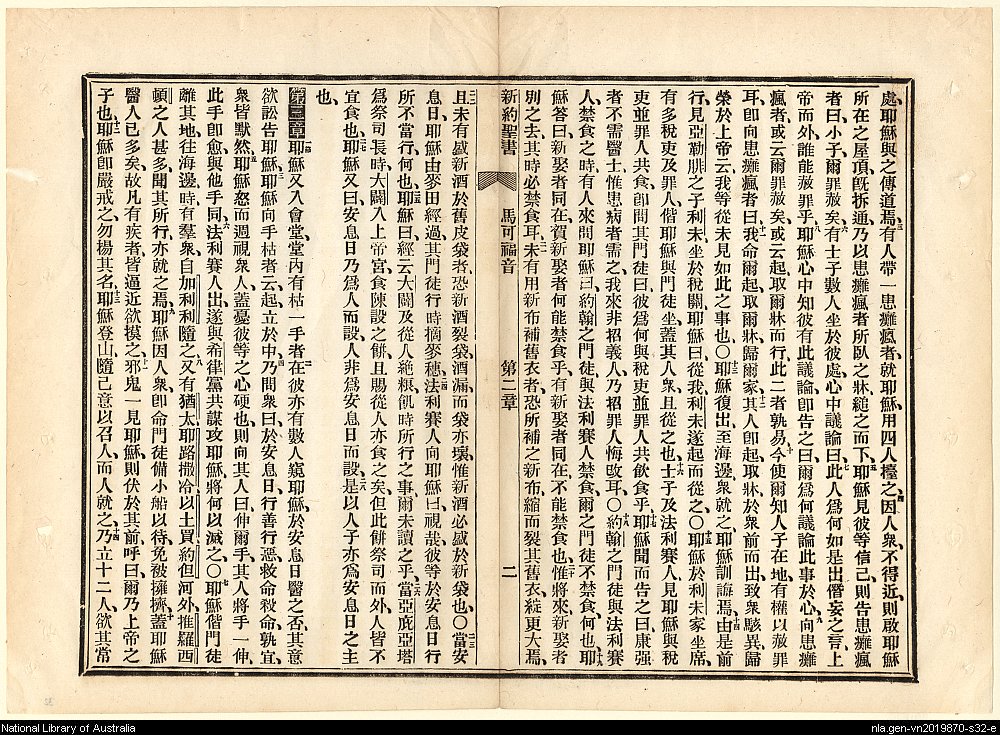 處耶穌與之傳道焉三有人帶一患癱瘋者就耶穌用四人擡之四因人衆不得近則啟耶穌
所在之屋頂旣拆通乃以患癱瘋者所臥之牀縋之而下五耶穌見彼等信己則告患癱瘋
者曰小子爾罪赦矣六有士子數人坐於彼處心中議論曰七此人爲何如是出僭妄之言上
帝而外誰能赦罪乎八耶穌心中知彼有此議論卽告之曰爾爲何議論此事於心九向患癱
瘋者或云爾罪赦矣或云起取爾牀而行此二者孰易十今使爾知人子在地有權以赦罪
耳卽向患癱瘋者曰十一我命爾起取爾牀歸爾家十二其人卽起取牀於衆前而出致衆駭異歸
榮於上帝云我等從未見如此之事也〇十三耶穌復出至海邊衆就之耶穌訓誨焉十四由是前
行見亞勒腓之子利未坐於稅關耶穌曰從我利未遂起而從之〇十五耶穌於利未家坐席
有多稅吏及罪人偕耶穌與門徒坐蓋其人衆且從之也十六士子及法利賽人見耶穌與稅
吏並罪人共食卽問其門徒曰彼爲何與稅吏並罪人共飲食乎十七耶穌聞而告之曰康强
者不需醫士惟患病者需之我來非招義人乃招罪人悔改耳〇十八約翰之門徒與法利賽
人禁食之時有人來問耶穌曰約翰之門徒與法利賽人禁食爾之門徒不禁食何也十九耶
穌答曰新娶者同在賀新娶者何能禁食乎有新娶者同在不能禁食也二十惟將來新娶者
別之去其時必禁食耳二一未有用新布補舊衣者恐所補之新布縮而裂其舊衣綻更大焉
新約聖書 馬可福音 第二章 二
二二且未有盛新酒於舊皮袋者恐新酒裂袋酒漏而袋亦壞惟新酒必盛於新袋也〇二三當安
息日耶穌由麥田經過其門徒行時摘麥穗二四法利賽人向耶穌曰視哉彼等於安息日行
所不當行何也二五耶穌曰經云大闢及從人絶粮飢時所行之事爾未讀之乎二六當亞庇亞塔
爲祭司長時大闢入上帝宮食陳設之餅且賜從人亦食之矣但此餅祭司而外人皆不
宜食也二七耶穌又曰安息日乃爲人而設人非爲安息日而設二八是以人子亦爲安息日之主
也
第三章一耶穌又入會堂堂內有枯一手者二在彼亦有數人窺耶穌於安息日醫之否其意
欲訟告耶穌三耶穌向手枯者云起立於中四乃問衆曰於安息日行善行惡救命殺命孰宜
衆皆默然五耶穌怒而週視衆人蓋憂彼等之心硬也則向其人曰伸爾手其人將手一伸
此手卽愈與他手同六法利賽人出遂與希律黨共謀攻耶穌將何以滅之〇七耶穌偕門徒
離其地往海邊時有羣衆自加利利隨之八又有猶太耶路撒冷以土買約但河外推羅西
頓之人甚多聞其所行亦就之焉九耶穌因人衆卽命門徒備小船以待免被擁擠十蓋耶穌
醫人已多矣故凡有疾者皆逼近欲摸之十一邪鬼一見耶穌則伏於其前呼曰爾乃上帝之
子也十二耶穌卽嚴戒之勿揚其名十三耶穌登山隨己意以召人而人就之十四乃立十二人欲其常
National Library of Australia
nla.gen-vn2019870-s32-e